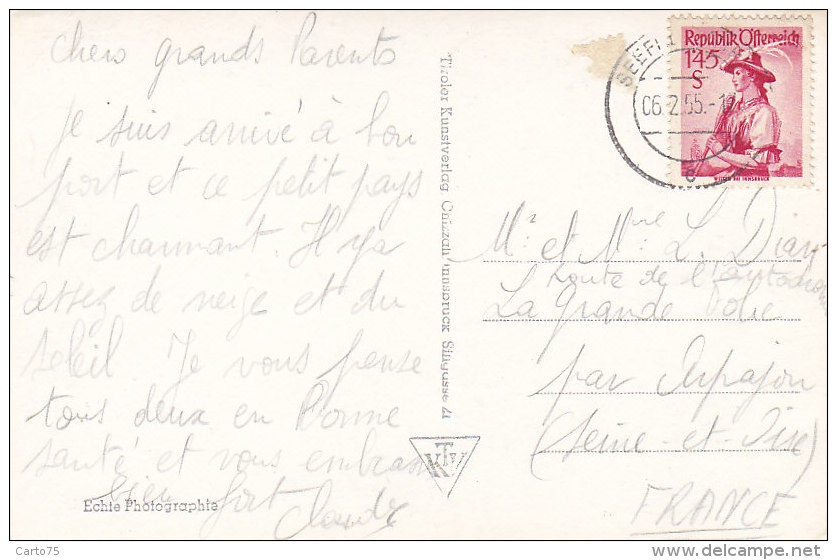 Chers grands Parents
Je suis arrivé à bon
port et ce petit pays
est charmant. Il y a
assez de neige et du
soleil. Je vous pense
tous deux en bonne
santé et vous embrasse
bien fort
Claude
Echte Photographie
Tiroler Kunstverlag Chizzali Innsbruck Sillgasse 21
KTV
SEEFELD
06.2.55.-1
c
Republik Österreich
1'45
S
WILTEN BEI INNSBRUCK
Mr et Mme L. Diar
route de l'autodrome
La Grande Folie
par Arpajon
(Seine-et-Oise)
FRANCE
Carto75
www.delcampe.net